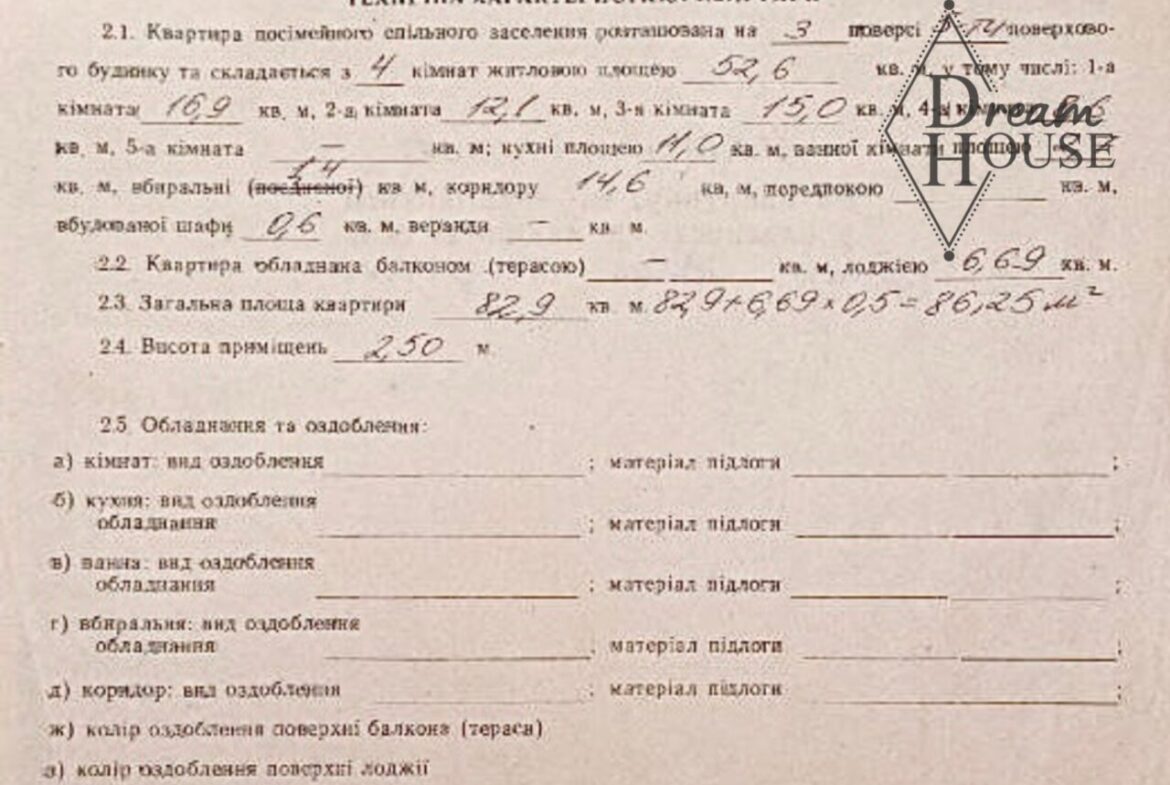 2.1. Квартира посімейного спільного заселення розташована на 3 поверсі поверхово-
го будинку та складається з 4 кімнат житловою площею 52,6 кв. м, у тому числі: 1-а
кімната 16,9 кв. м, 2-а кімната 12,1 кв. м, 3-я кімната 15,0 кв. м, 4-а
кв. м, 5-а кімната — кв. м; кухні площею 11,0 кв. м, ванної кімнати площею
1,4
кв. м, вбиральні (поєднаної) кв м, коридору 14,6 кв, м, передпокою кв. м,
вбудованої шафи 0,6 кв. м, веранди — кв м.
2.2. Квартира обладнана балконом (терасою) — кв. м, лоджією 6,69 кв. м.
2.3. Загальна площа квартири 82,9 кв м. 82,9+6,69×0,5=86,25 м²
2.4. Висота приміщень 2,50 м
2.5. Обладнання та оздоблення:
а) кімнат: вид оздоблення ; матеріал підлоги ;
б) кухня: вид оздоблення
обладнання ; матеріал підлоги ;
в) ванна: вид оздоблення
обладнання ; матеріал підлоги ;
г) вбиральня: вид оздоблення
обладнання ; матеріал підлоги ;
д) коридор: вид оздоблення ; матеріал підлоги ;
ж) колір оздоблення поверхні балкона (тераси)
з) колір оздоблення поверхні лоджії
Dream
HOUSE